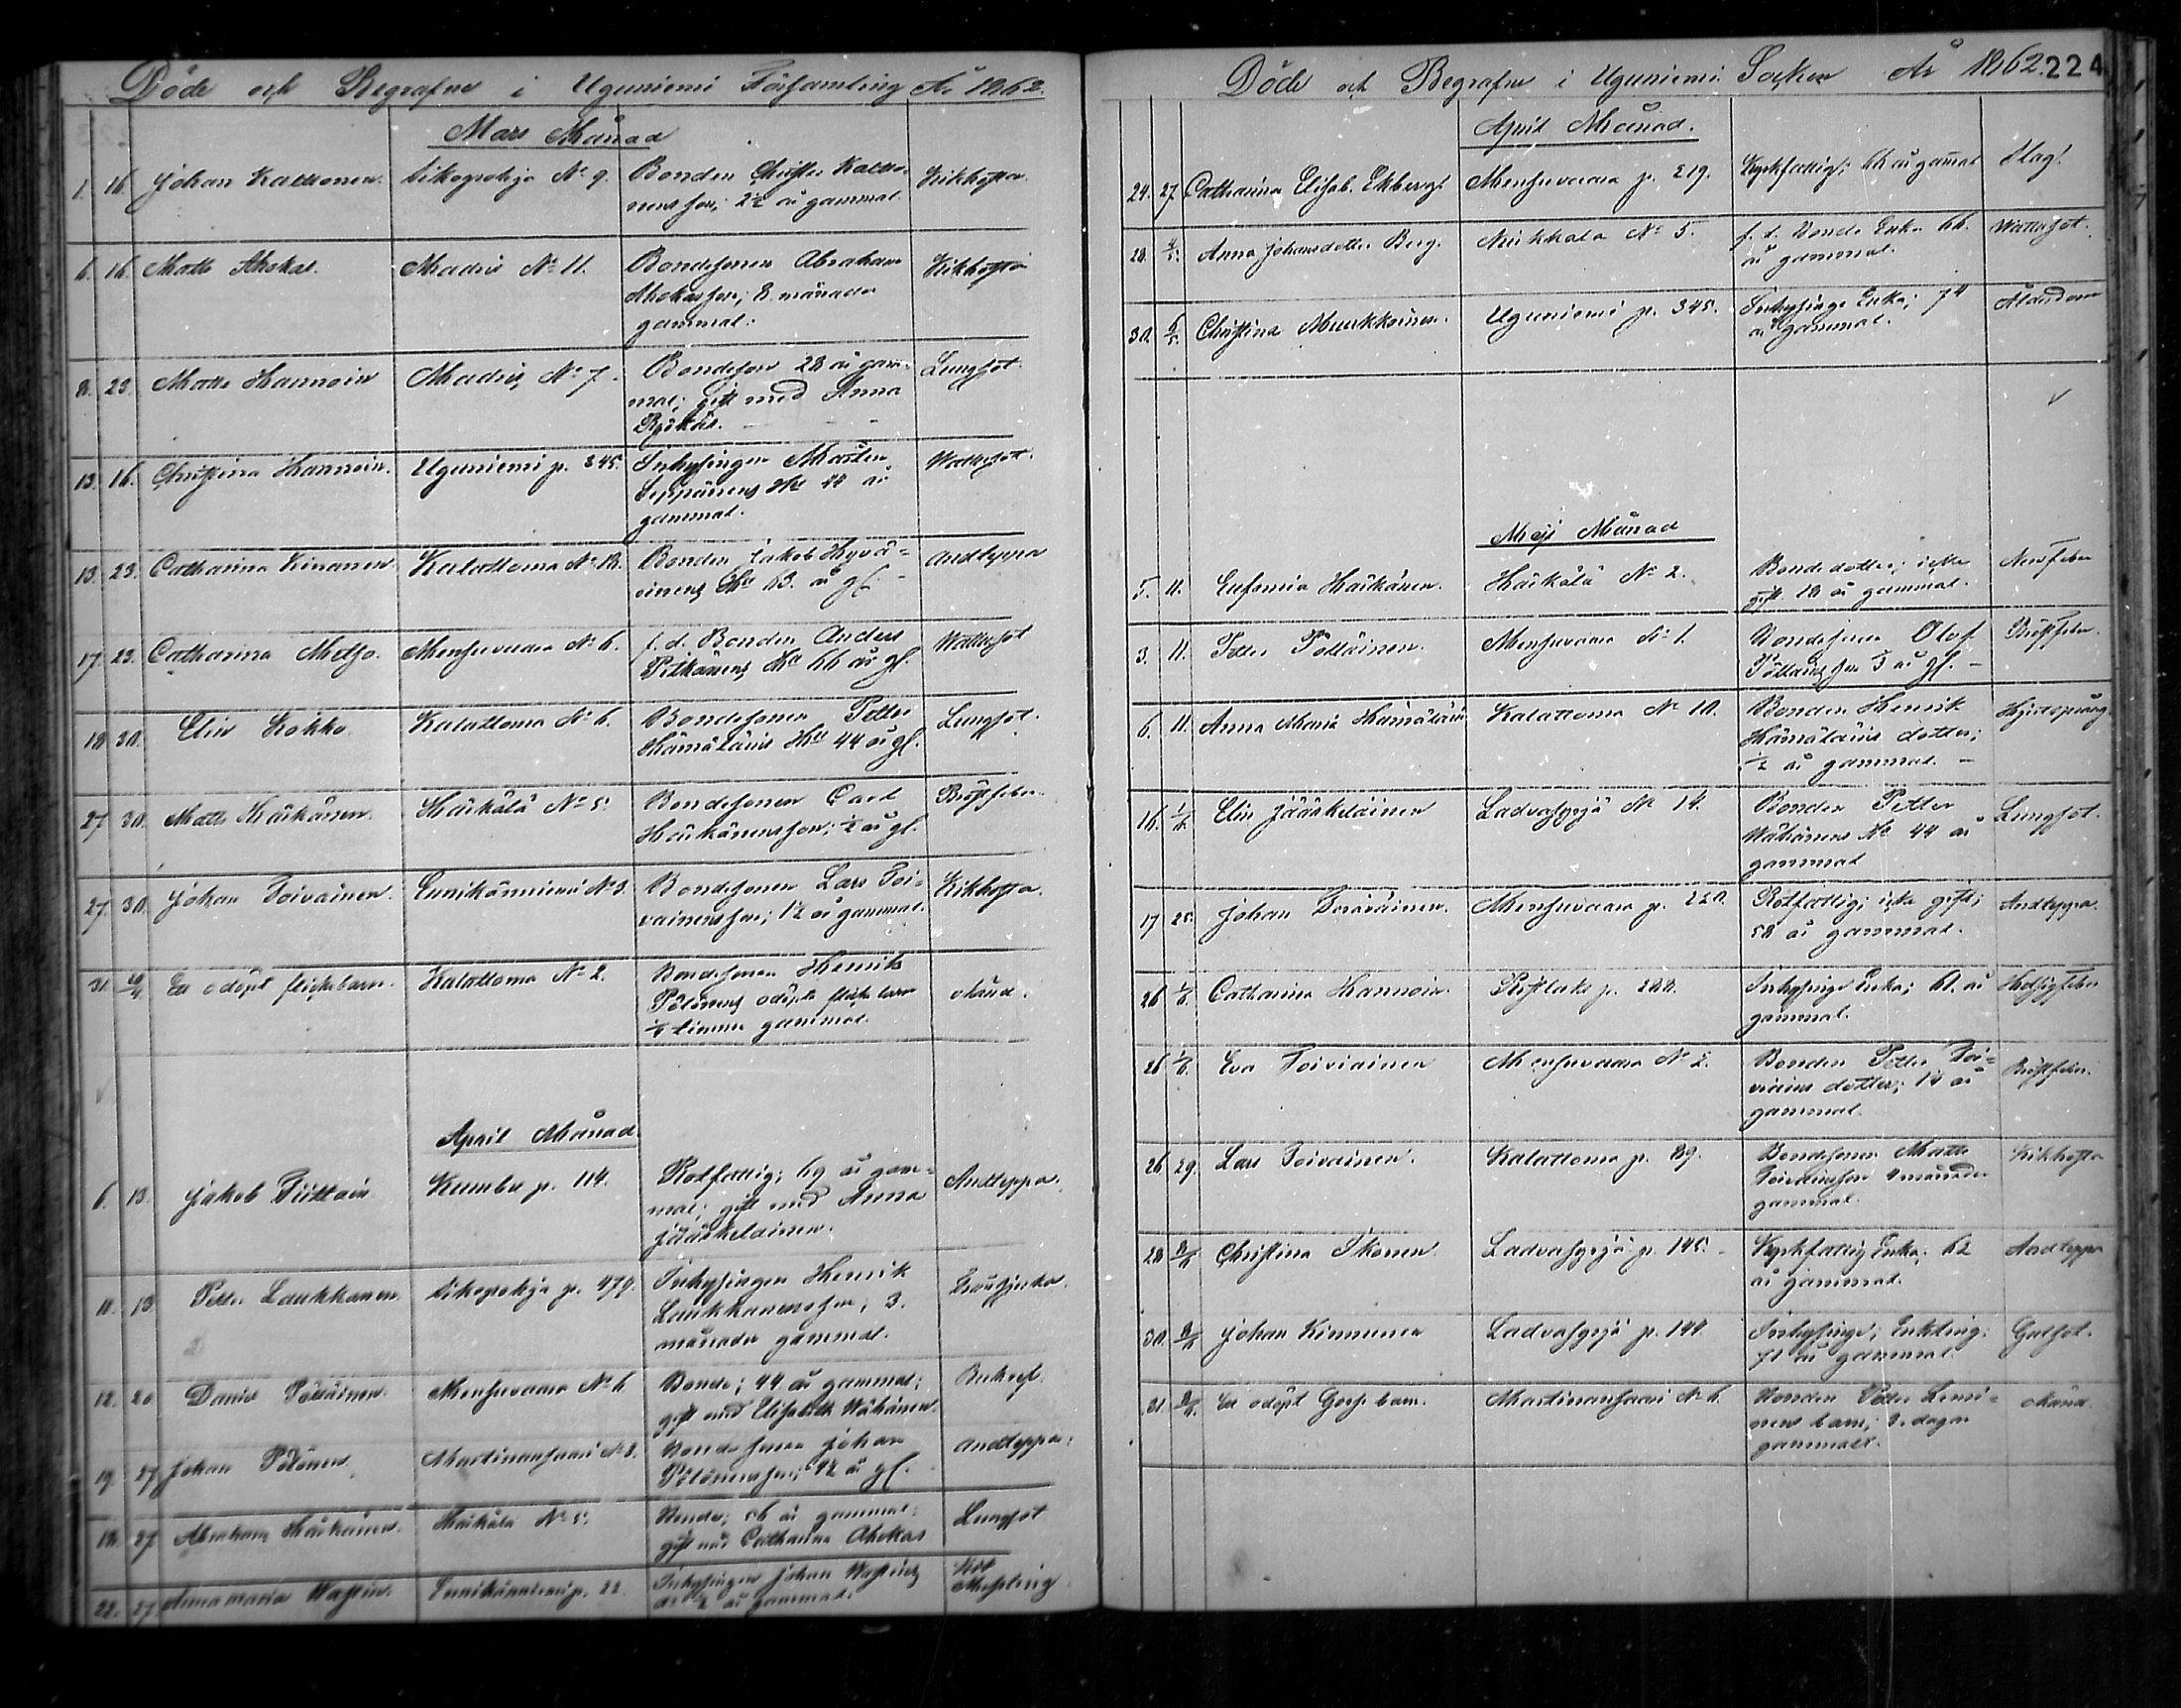 Döde och Begrafne i Uguniemi Församling År 1862.
Mars Månad
1. 16. Johan Kattronen. Sikopohja No 9. Bonden Christer Kattro-
nens son; 2½ år gammal. Kikhosta.
6. 16. Matts Ahokas. Madis No 11. Bondesonen Abraham
Ahokas son; 8 månader
gammal. Kikhosta
8. 23. Matts Hannoin Madis No 7. Bondeson 28 år gam-
mal; gift med Anna
Lungsot.
13. 16. Christina Hannoin. Uguniemi p. 345. Inhysingen Mårten
Seppänens Hu 44 år
gammal. Wattusot.
13. 23. Catharina Kinanen. Kalattoma No 18. Bonden Jakob Hyvä-
rinens Hu 63. år gl. Andteppa
17. 23. Catharina Metso. Mensuvaara No 6. f. d. Bonden Anders
Pitkänens Ka 66 år gl. Wattusot
18. 30. Elin Kokko. Kalattoma No 6. Bondesonen Petter
Hämäläins Hu 44 år gl. Lungsot.
27. 30. Matts Haikånen. Haikålå No 5. Bondesonen Carl
Haikånens son; ½ år gl. Bröstfeber.
27. 30. Johan Toivainen. No 3. Bondesonen Lars Toi-
vainens son; 1½ år gammal. Kikhosta.
31. En odöpt flickebarn. Kalattoma No 2. Bondesonen Henrik
Pölönens odöpta flickebarn
timma gammal. okänd.
April Månad.
6. 13. Jakob Tiittain Kumbu p. 114. Rotfattig; 69 år gam-
mal; gift med Anna
Jääskelainen. Andteppa.
11. 13 Petter Laukkanen. Sikopohja p. 479. Inhysingen Henrik
Laukkanens son; 3.
månader gammal.
12. 20 Daniel Pöllåinen. Mensuvaara No 6. Bonde; 44 år gammal;
gift med Elisabeth Wåhånen.
19. 27 Johan Pölönen Martinansaari No 3. Bondesonen Johan
Pölönens son; 42 år gl. Andteppa.
18. 27 Abraham Haikånen. Haikålå No 5. Bonde; 56 år gammal;
gift med Catharina Ahokas Lungsot
22. 27 Anna Maria Wastin. p. 22. Inhysingen Johan Wastins
½ år gammal. Messling
Döde och Begrafne i Uguniemi Socken År 1862. 224
April Månad.
24. 27. Catharina Elisab. Ekberg. Mensuvaara p. 219. Kyrkfattig; 66 år gammal Slag.
28. 4/5. Anna Johansdotter Berg. Niukkala No 5. f. d. Bonde Enka 66.
år gammal. Wattusot.
30. Christina Muukkoinen. Uguniemi p. 345. Inhysings Enka; 74
år gammal. Ålderdom
Maji Månad
5. 11. Eufemia Haikånen. Haikålå No 2. Bondedotter; icke
gift 18 år gammal. Nervfeber
3. 11. Petter Pöllåinen. Mensuvaara No 1. Bondesonen Olof
Pöllåins son 3 år gl. Bröstfeber.
6. 11. Anna Maria Hämäläin Kalattoma No 10. Bonden Henrik
Hämäläins dotter;
½ år gammal.
16. 1/6. Elin Jääskeläinen Ladvasyrjä No 14. Bonden Petter
Wåhånens Hu 44 år
gammal Lungsot.
17 25. Johan Mensuvaara p. 220. Rotfattig; icke gift;
58 år gammal. Andteppa.
26 1/6. Catharina Hannoin. Ristlaks p. 288. Inhysings Enka; år
gammal.
26 1/6. Eva Toiviainen Mensuvaara No 2. Bonden Petter Toi-
viains dotter; 14 år
gammal. Bröstfeber.
26 29. Lars Toivainen. Kalattoma p. 89. Bondesonen Matts
Toivainens son 4 månader
gammal. Kikhosta
28 8/6 Christina Ikonen Ladvasyrjä p. 145. Kyrkfattig Enka; 62
år gammal. Andteppa
30. 8/6 Johan Kinnunen Ladvasyrjä p. 144 Inhysing; Enkling;
71 år gammal. Gulsot.
31. 8/6. En odöpt Gosse barn. Martinansaari No 6. Bonden Petter
barn; 3. dagar
gammalt. okänd.